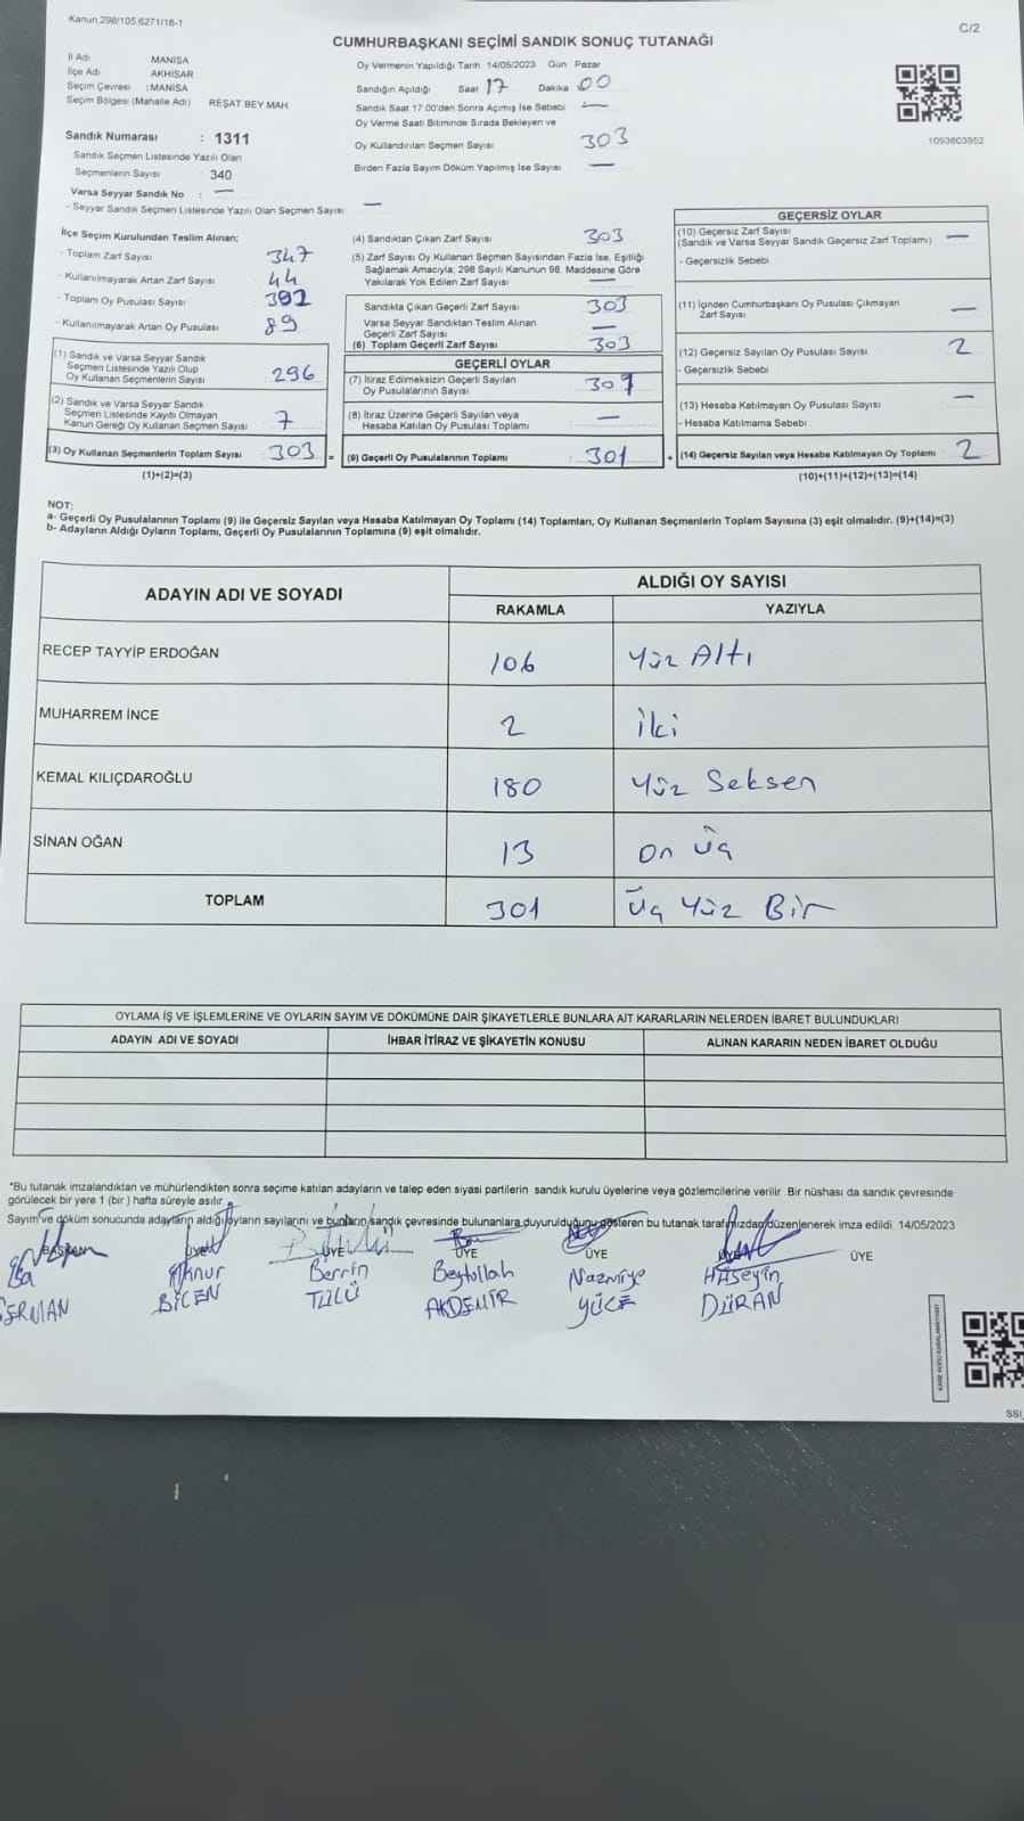 Kanun 298/105,6271/16-1
C/2
CUMHURBAŞKANI SEÇİMİ SANDIK SONUÇ TUTANAĞI
İl Adı MANİSA
İlçe Adı AKHİSAR
Seçim Çevresi :MANİSA
Seçim Bölgesi (Mahalle Adı) REŞAT BEY MAH.
Sandık Numarası : 1311
Sandık Seçmen Listesinde Yazılı Olan
Seçmenlerin Sayısı 340
Varsa Seyyar Sandık No : —
- Seyyar Sandık Seçmen Listesinde Yazılı Olan Seçmen Sayısı —
Oy Vermenin Yapıldığı Tarih 14/05/2023 Gün Pazar
Sandığın Açıldığı Saat 17 Dakika 00
Sandık Saat 17.00'den Sonra Açılmış İse Sebebi —
Oy Verme Saati Bitiminde Sırada Bekleyen ve
Oy Kullandırılan Seçmen Sayısı 303
Birden Fazla Sayım Döküm Yapılmış İse Sayısı —
1093603952
İlçe Seçim Kurulundan Teslim Alınan;
- Toplam Zarf Sayısı 347
- Kullanılmayarak Artan Zarf Sayısı 44
- Toplam Oy Pusulası Sayısı 392
- Kullanılmayarak Artan Oy Pusulası 89
(1) Sandık ve Varsa Seyyar Sandık
Seçmen Listesinde Yazılı Olup
Oy Kullanan Seçmenlerin Sayısı 296
(2) Sandık ve Varsa Seyyar Sandık
Seçmen Listesinde Kayıtlı Olmayan
Kanun Gereği Oy Kullanan Seçmen Sayısı 7
(3) Oy Kullanan Seçmenlerin Toplam Sayısı 303 =
(1)+(2)=(3)
(4) Sandıktan Çıkan Zarf Sayısı 303
(5) Zarf Sayısı Oy Kullanan Seçmen Sayısından Fazla İse, Eşitliği
Sağlamak Amacıyla; 298 Sayılı Kanunun 98. Maddesine Göre
Yakılarak Yok Edilen Zarf Sayısı —
Sandıkta Çıkan Geçerli Zarf Sayısı 303
Varsa Seyyar Sandıktan Teslim Alınan
Geçerli Zarf Sayısı —
(6) Toplam Geçerli Zarf Sayısı 303
GEÇERLİ OYLAR
(7) İtiraz Edilmeksizin Geçerli Sayılan
Oy Pusulalarının Sayısı 301
(8) İtiraz Üzerine Geçerli Sayılan veya
Hesaba Katılan Oy Pusulası Toplamı —
(9) Geçerli Oy Pusulalarının Toplamı 301 +
GEÇERSİZ OYLAR
(10) Geçersiz Zarf Sayısı
(Sandık ve Varsa Seyyar Sandık Geçersiz Zarf Toplamı) —
- Geçersizlik Sebebi
(11) İçinden Cumhurbaşkanı Oy Pusulası Çıkmayan
Zarf Sayısı —
(12) Geçersiz Sayılan Oy Pusulası Sayısı 2
- Geçersizlik Sebebi
(13) Hesaba Katılmayan Oy Pusulası Sayısı —
- Hesaba Katılmama Sebebi
(14) Geçersiz Sayılan veya Hesaba Katılmayan Oy Toplamı 2
(10)+(11)+(12)+(13)=(14)
NOT:
a- Geçerli Oy Pusulalarının Toplamı (9) ile Geçersiz Sayılan veya Hesaba Katılmayan Oy Toplamı (14) Toplamları, Oy Kullanan Seçmenlerin Toplam Sayısına (3) eşit olmalıdır. (9)+(14)=(3)
b- Adayların Aldığı Oyların Toplamı, Geçerli Oy Pusulalarının Toplamına (9) eşit olmalıdır.
ADAYIN ADI VE SOYADI
ALDIĞI OY SAYISI
RAKAMLA YAZIYLA
RECEP TAYYİP ERDOĞAN 106 Yüz Altı
MUHARREM İNCE 2 İki
KEMAL KILIÇDAROĞLU 180 Yüz Seksen
SİNAN OĞAN 13 On üç
TOPLAM 301 Üç Yüz Bir
OYLAMA İŞ VE İŞLEMLERİNE VE OYLARIN SAYIM VE DÖKÜMÜNE DAİR ŞİKAYETLERLE BUNLARA AİT KARARLARIN NELERDEN İBARET BULUNDUKLARI
ADAYIN ADI VE SOYADI İHBAR İTİRAZ VE ŞİKAYETİN KONUSU ALINAN KARARIN NEDEN İBARET OLDUĞU
*Bu tutanak imzalandıktan ve mühürlendikten sonra seçime katılan adayların ve talep eden siyasi partilerin sandık kurulu üyelerine veya gözlemcilerine verilir. Bir nüshası da sandık çevresinde
görülecek bir yere 1 (bir) hafta süreyle asılır.
Sayım ve döküm sonucunda adayların aldığı oyların sayılarını ve bunların sandık çevresinde bulunanlara duyurulduğunu gösteren bu tutanak tarafımızdan düzenlenerek imza edildi. 14/05/2023
BAŞKAN ÜYE ÜYE ÜYE ÜYE ÜYE ÜYE
İlknur Berrin Beytullah Nazmiye Hüseyin
BİÇEN TÜLÜ AKDEMİR YÜCE DURAN
SSI